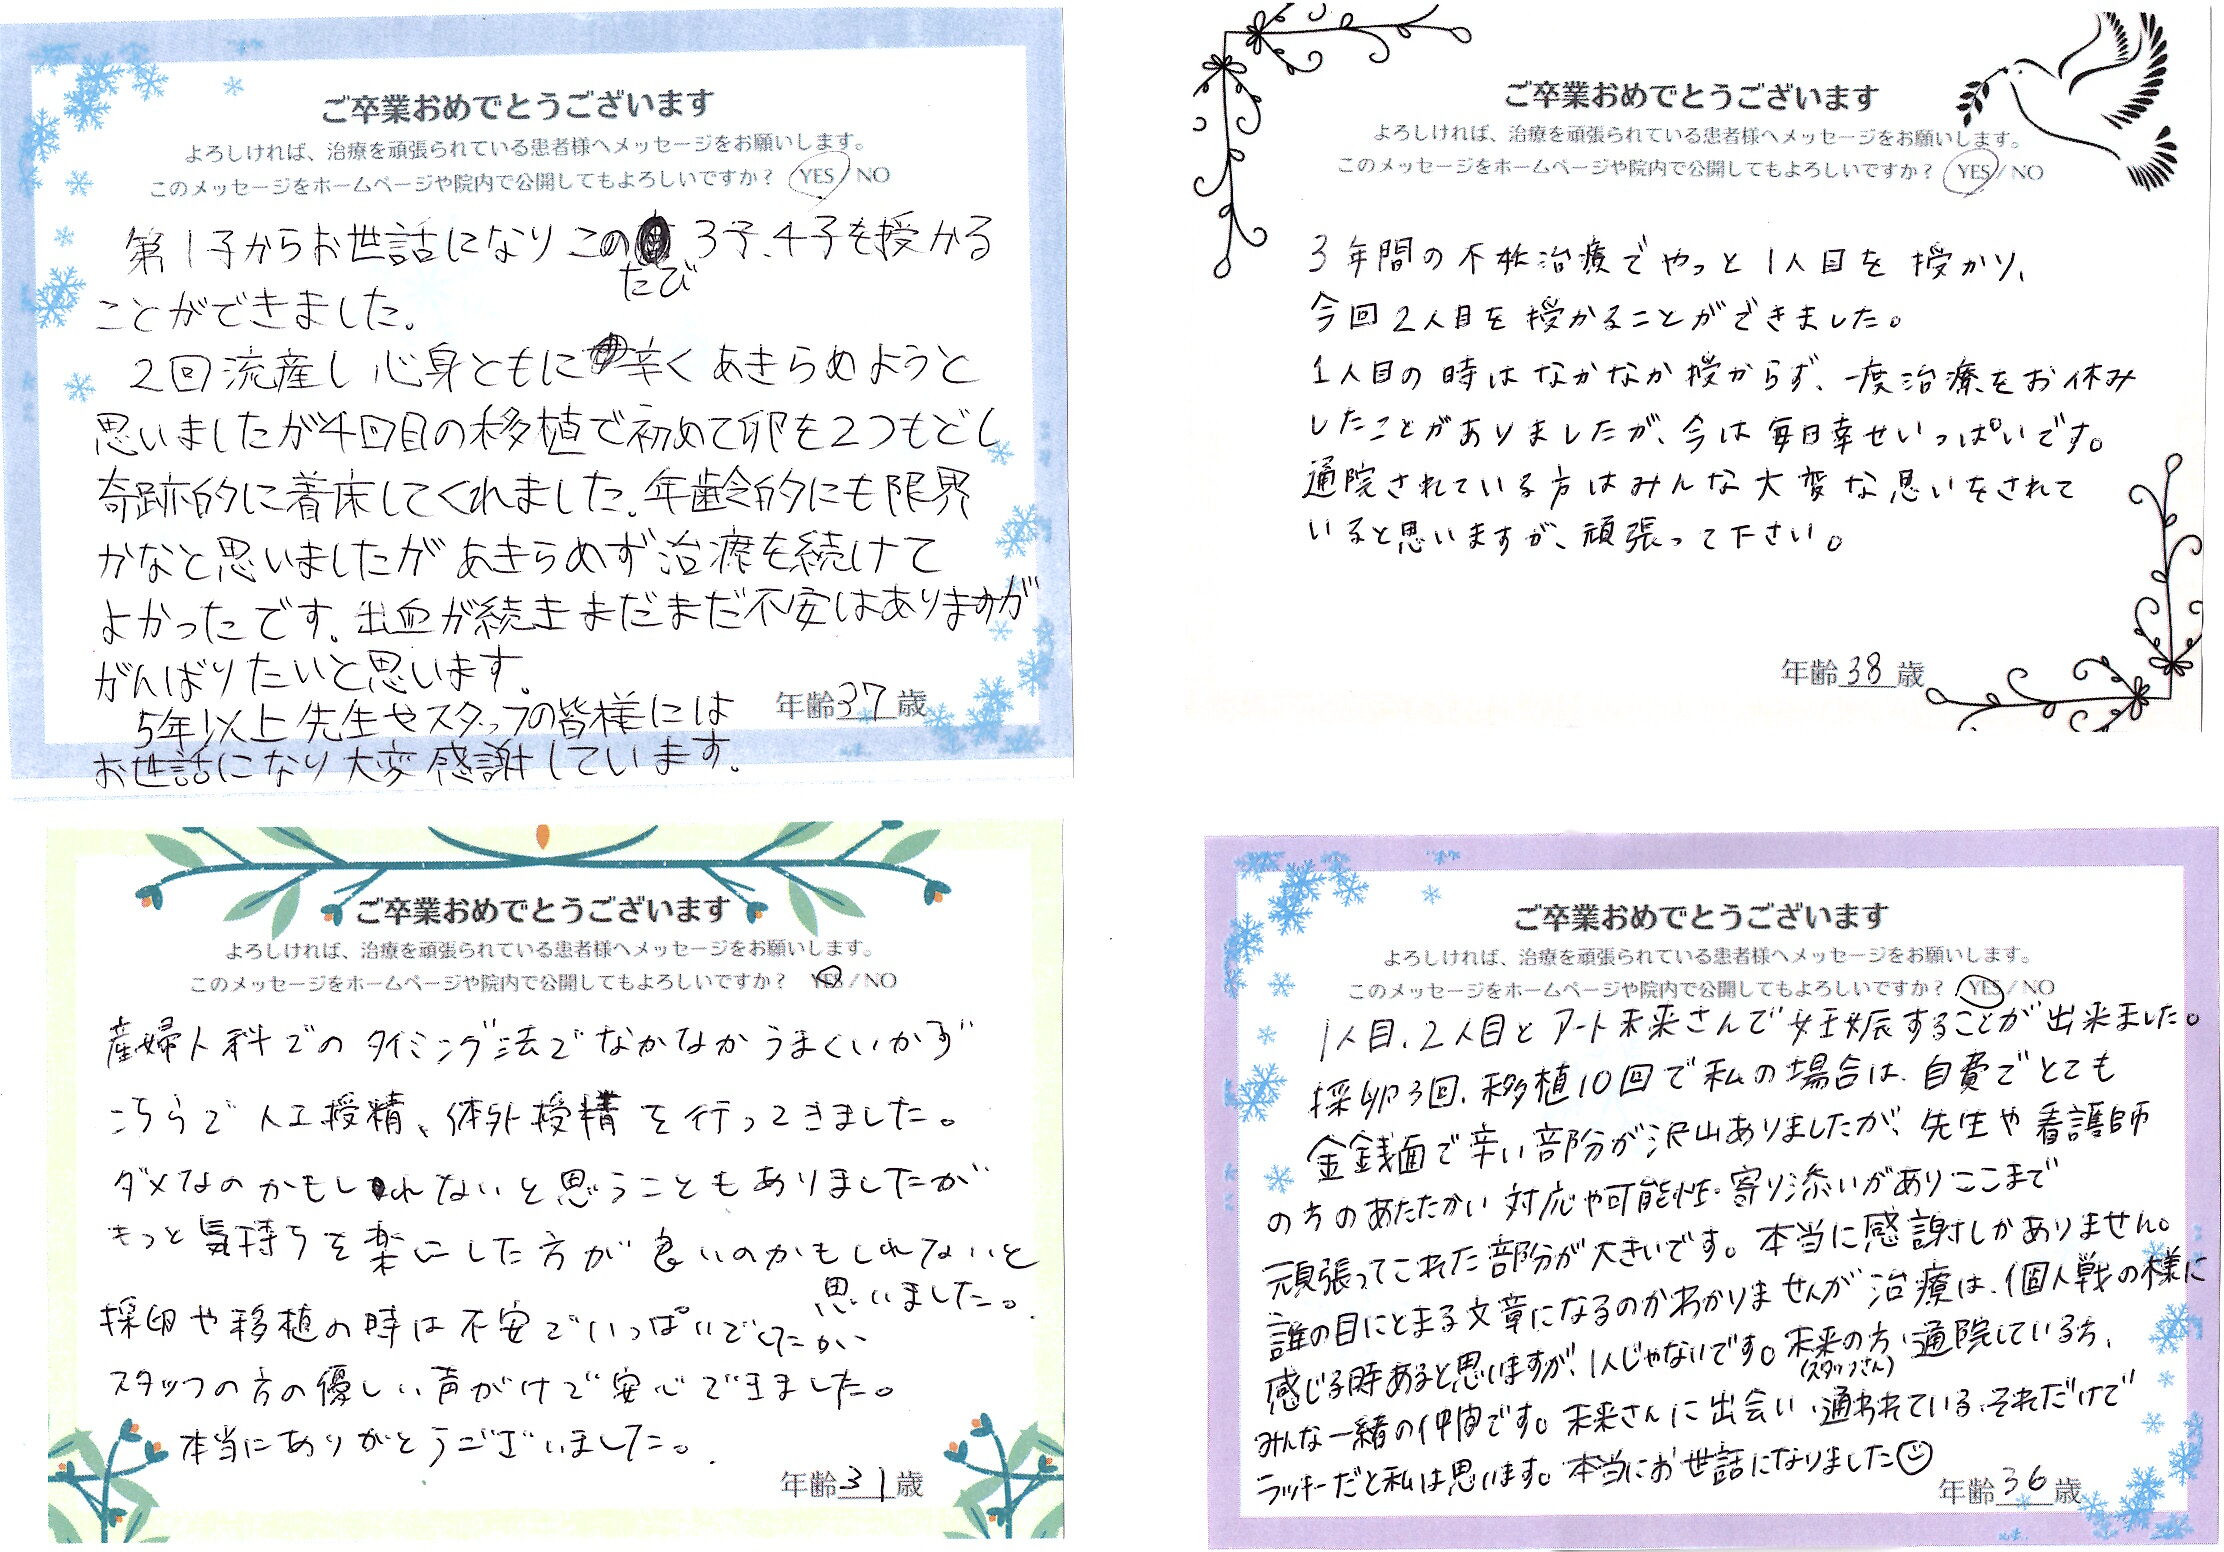 ご卒業おめでとうございます
よろしければ、治療を頑張られている患者様へメッセージをお願いします。
このメッセージをホームページや院内で公開してもよろしいですか？ YES/NO
第1子からお世話になりこの 3子、4子を授かる
たび
ことができました。
2回流産し 心身ともに辛く あきらめようと
思いましたが4回目の移植で初めて卵を2つもどし
奇跡的に着床してくれました。年齢的にも限界
かなと思いましたが あきらめず治療を続けて
よかったです。出血が続きまだまだ不安はありますが
がんばりたいと思います。
5年以上先生やスタッフの皆様には
お世話になり大変感謝しています。
年齢37歳
ご卒業おめでとうございます
よろしければ、治療を頑張られている患者様へメッセージをお願いします。
このメッセージをホームページや院内で公開してもよろしいですか？ YES/NO
3年間の不妊治療でやっと1人目を授かり、
今回2人目を授かることができました。
1人目の時はなかなか授からず、一度治療をお休み
したことがありましたが、今は毎日幸せいっぱいです。
通院されている方はみんな大変な思いをされて
いると思いますが、頑張って下さい。
年齢38歳
ご卒業おめでとうございます
よろしければ、治療を頑張られている患者様へメッセージをお願いします。
このメッセージをホームページや院内で公開してもよろしいですか？ YES/NO
産婦人科でのタイミング法でなかなかうまくいかず
こちらで人工授精、体外授精を行ってきました。
ダメなのかもしれないと思うこともありましたが
もっと気持ちを楽にした方が良いのかもしれないと
思いました。
採卵や移植の時は不安でいっぱいでしたが、
スタッフの方の優しい声がけで安心できました。
本当にありがとうございました。
年齢31歳
ご卒業おめでとうございます
よろしければ、治療を頑張られている患者様へメッセージをお願いします。
このメッセージをホームページや院内で公開してもよろしいですか？ YES/NO
1人目、2人目とアート未来さんで妊娠することが出来ました。
採卵3回、移植10回で私の場合は、自費でとても
金銭面で辛い部分が沢山ありましたが、先生や看護師
の方のあたたかい対応や可能性・寄り添いがありここまで
頑張ってこれた部分が大きいです。本当に感謝しかありません。
誰の目にとまる文章になるのかわかりませんが治療は、個人戦の様に
感じる時あると思いますが、1人じゃないです。未来の方・通院している方、
(スタッフさん)
みんな一緒の仲間です。未来さんに出会い、通われている、それだけで
ラッキーだと私は思います。本当にお世話になりました
年齢36歳